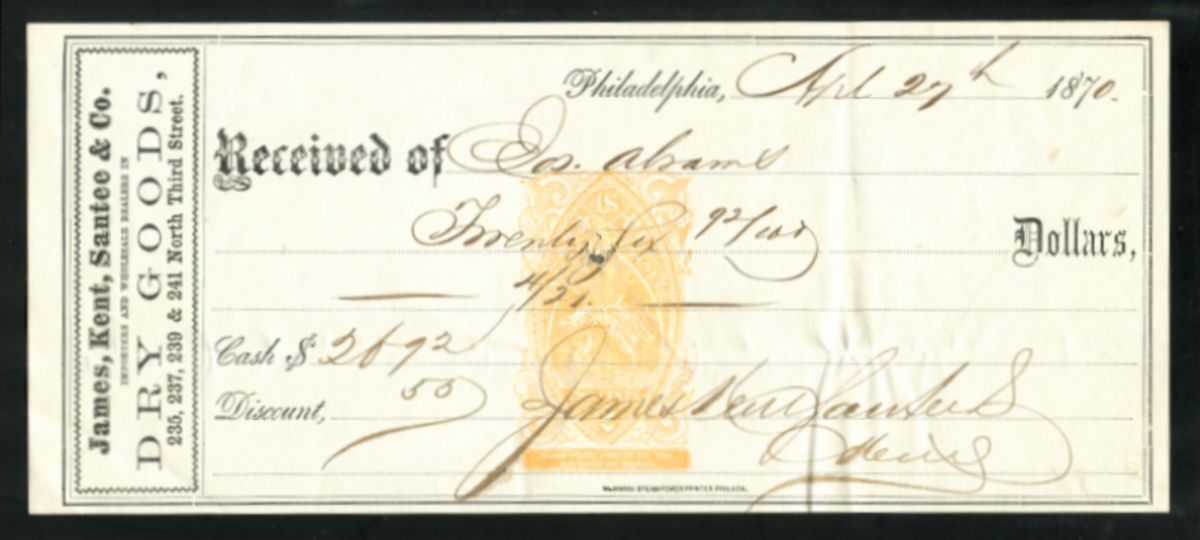 James, Kent, Santee & Co.
IMPORTERS AND WHOLESALE DEALERS IN
DRY GOODS,
235, 237, 239 & 241 North Third Street.
Philadelphia, Apl 27th 1870.
Received of Jos. Abrams
Twenty Six 92/100 Dollars,
4/21.
Cash $ 26 92
Discount, 55
James Kent Santee & Co
U.S.
STEAM POWER PRINTER PHILADA.